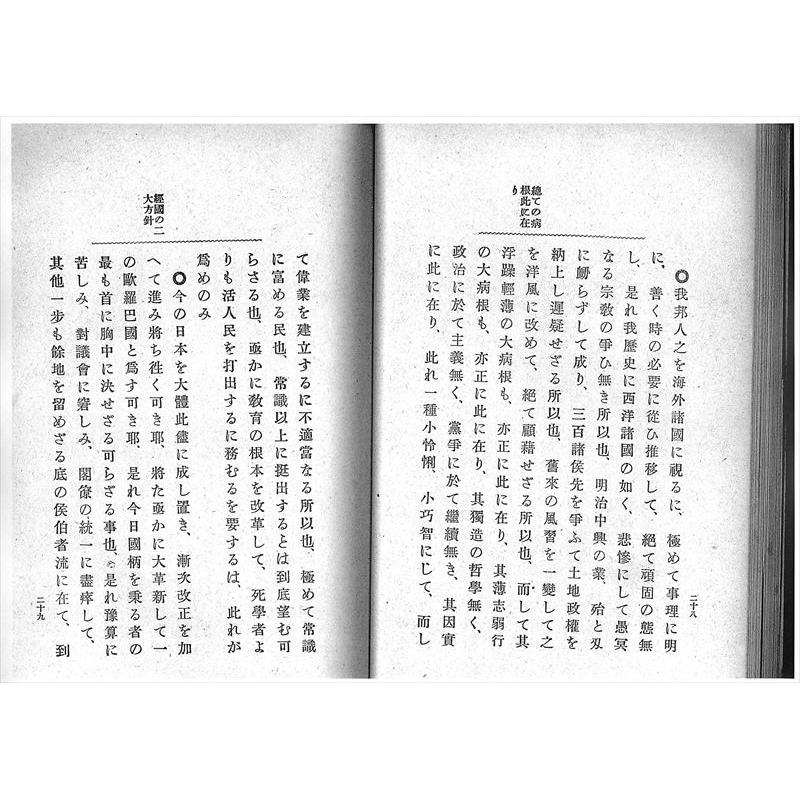 二十八
總ての病
根此に在
り
◎我邦人之を海外諸國に視るに、極めて事理に明
に、善く時の必要に從ひ推移して、絕て頑固の態無
し、是れ我歷史に西洋諸國の如く、悲慘にして愚冥
なる宗敎の爭ひ無き所以也、明治中興の業、殆と刄
に衂らずして成り、三百諸侯先を爭ふて土地政權を
納上し遲疑せざる所以也、舊來の風習を一變して之
を洋風に改めて、絕て顧藉せざる所以也、而して其
浮躁輕薄の大病根も、亦正に此に在り、其薄志弱行
の大病根も、亦正に此に在り、其獨造の哲學無く、
政治に於て主義無く、黨爭に於て繼續無き、其因實
に此に在り、此れ一種小怜悧、小巧智にして、而し
て偉業を建立するに不適當なる所以也、極めて常識
に富める民也、常識以上に挺出するとは到底望む可
らさる也、亟かに敎育の根本を改革して、死學者よ
りも活人民を打出するに務むるを要するは、此れが
爲めのみ
經國の二
大方針
◎今の日本を大體此儘に成し置き、漸次改正を加
へて進み將ち徃く可き耶、將た亟かに大革新して一
の歐羅巴國と爲す可き耶、是れ今日國柄を乘る者の
最も首に胸中に決せざる可らざる事也、是れ豫算に
苦しみ、對議會に窘しみ、閣僚の統一に盡瘁して、
其他一步も餘地を留めざる底の侯伯者流に在て、到
二十九